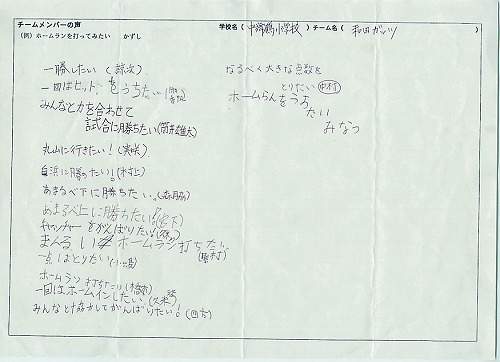 チームメンバーの声
学校名( 小学校 ) チーム名( 和田ガッツ )
(例) ホームランを打ってみたい かずし
一勝したい(諒次)
一回はヒットをうちたい
みんなと力を合わせて
試合に勝ちたい(筒井雄太)
丸山に行きたい!(実咲)
白浜に勝ちたい!(木村上)
あまるべ下に勝ちたい。(森脇)
あまるべ上に勝ちたい!(宮下)
キャッチャーをがんばりたい!
まんるいホームラン打ちたい。
(藤村)
一点はとりたい
ホームラン打ちたい(橋本)
一回はホームインしたい。
みんなと協力してがんばりたい!
なるべく大きな点数を
とりたい 中村
ホームらんをうち
たい
みなつ